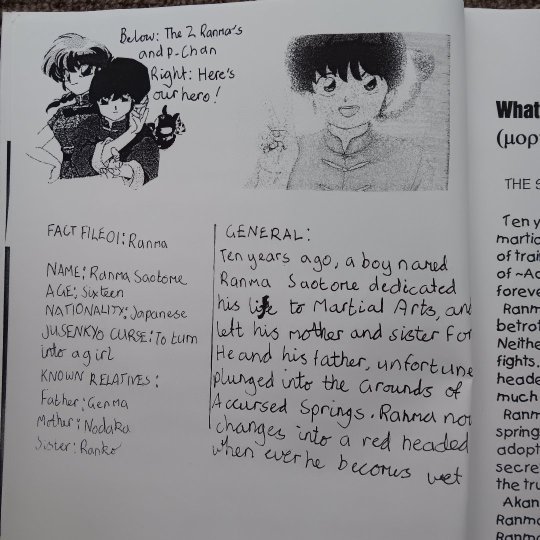 Below: The 2 Ranma's
and P-Chan
Right: Here's
our hero!
FACT FILE01: Ranma
NAME: Ranma Saotome
AGE: Sixteen
NATIONALITY: Japanese
JUSENKYO CURSE: To turn
into a girl
KNOWN RELATIVES:
Father: Genma
Mother: Nodoka
Sister: Ranko
GENERAL:
Ten years ago, a boy named
Ranma Saotome dedicated
his life to Martial Arts, and
left his mother and sister for
He and his father, unfortune
plunged into the Grounds of
Accursed Springs. Ranma now
changes into a red headed
when ever he becomes wet
What
(μορ
THE S
Ten y
martia
of trai
of ~Ac
foreve
Ranm
betrot
Neithe
fights.
heade
much
Ranm
spring
adopt
secre
the tru
Akan
Ranma
Ranma